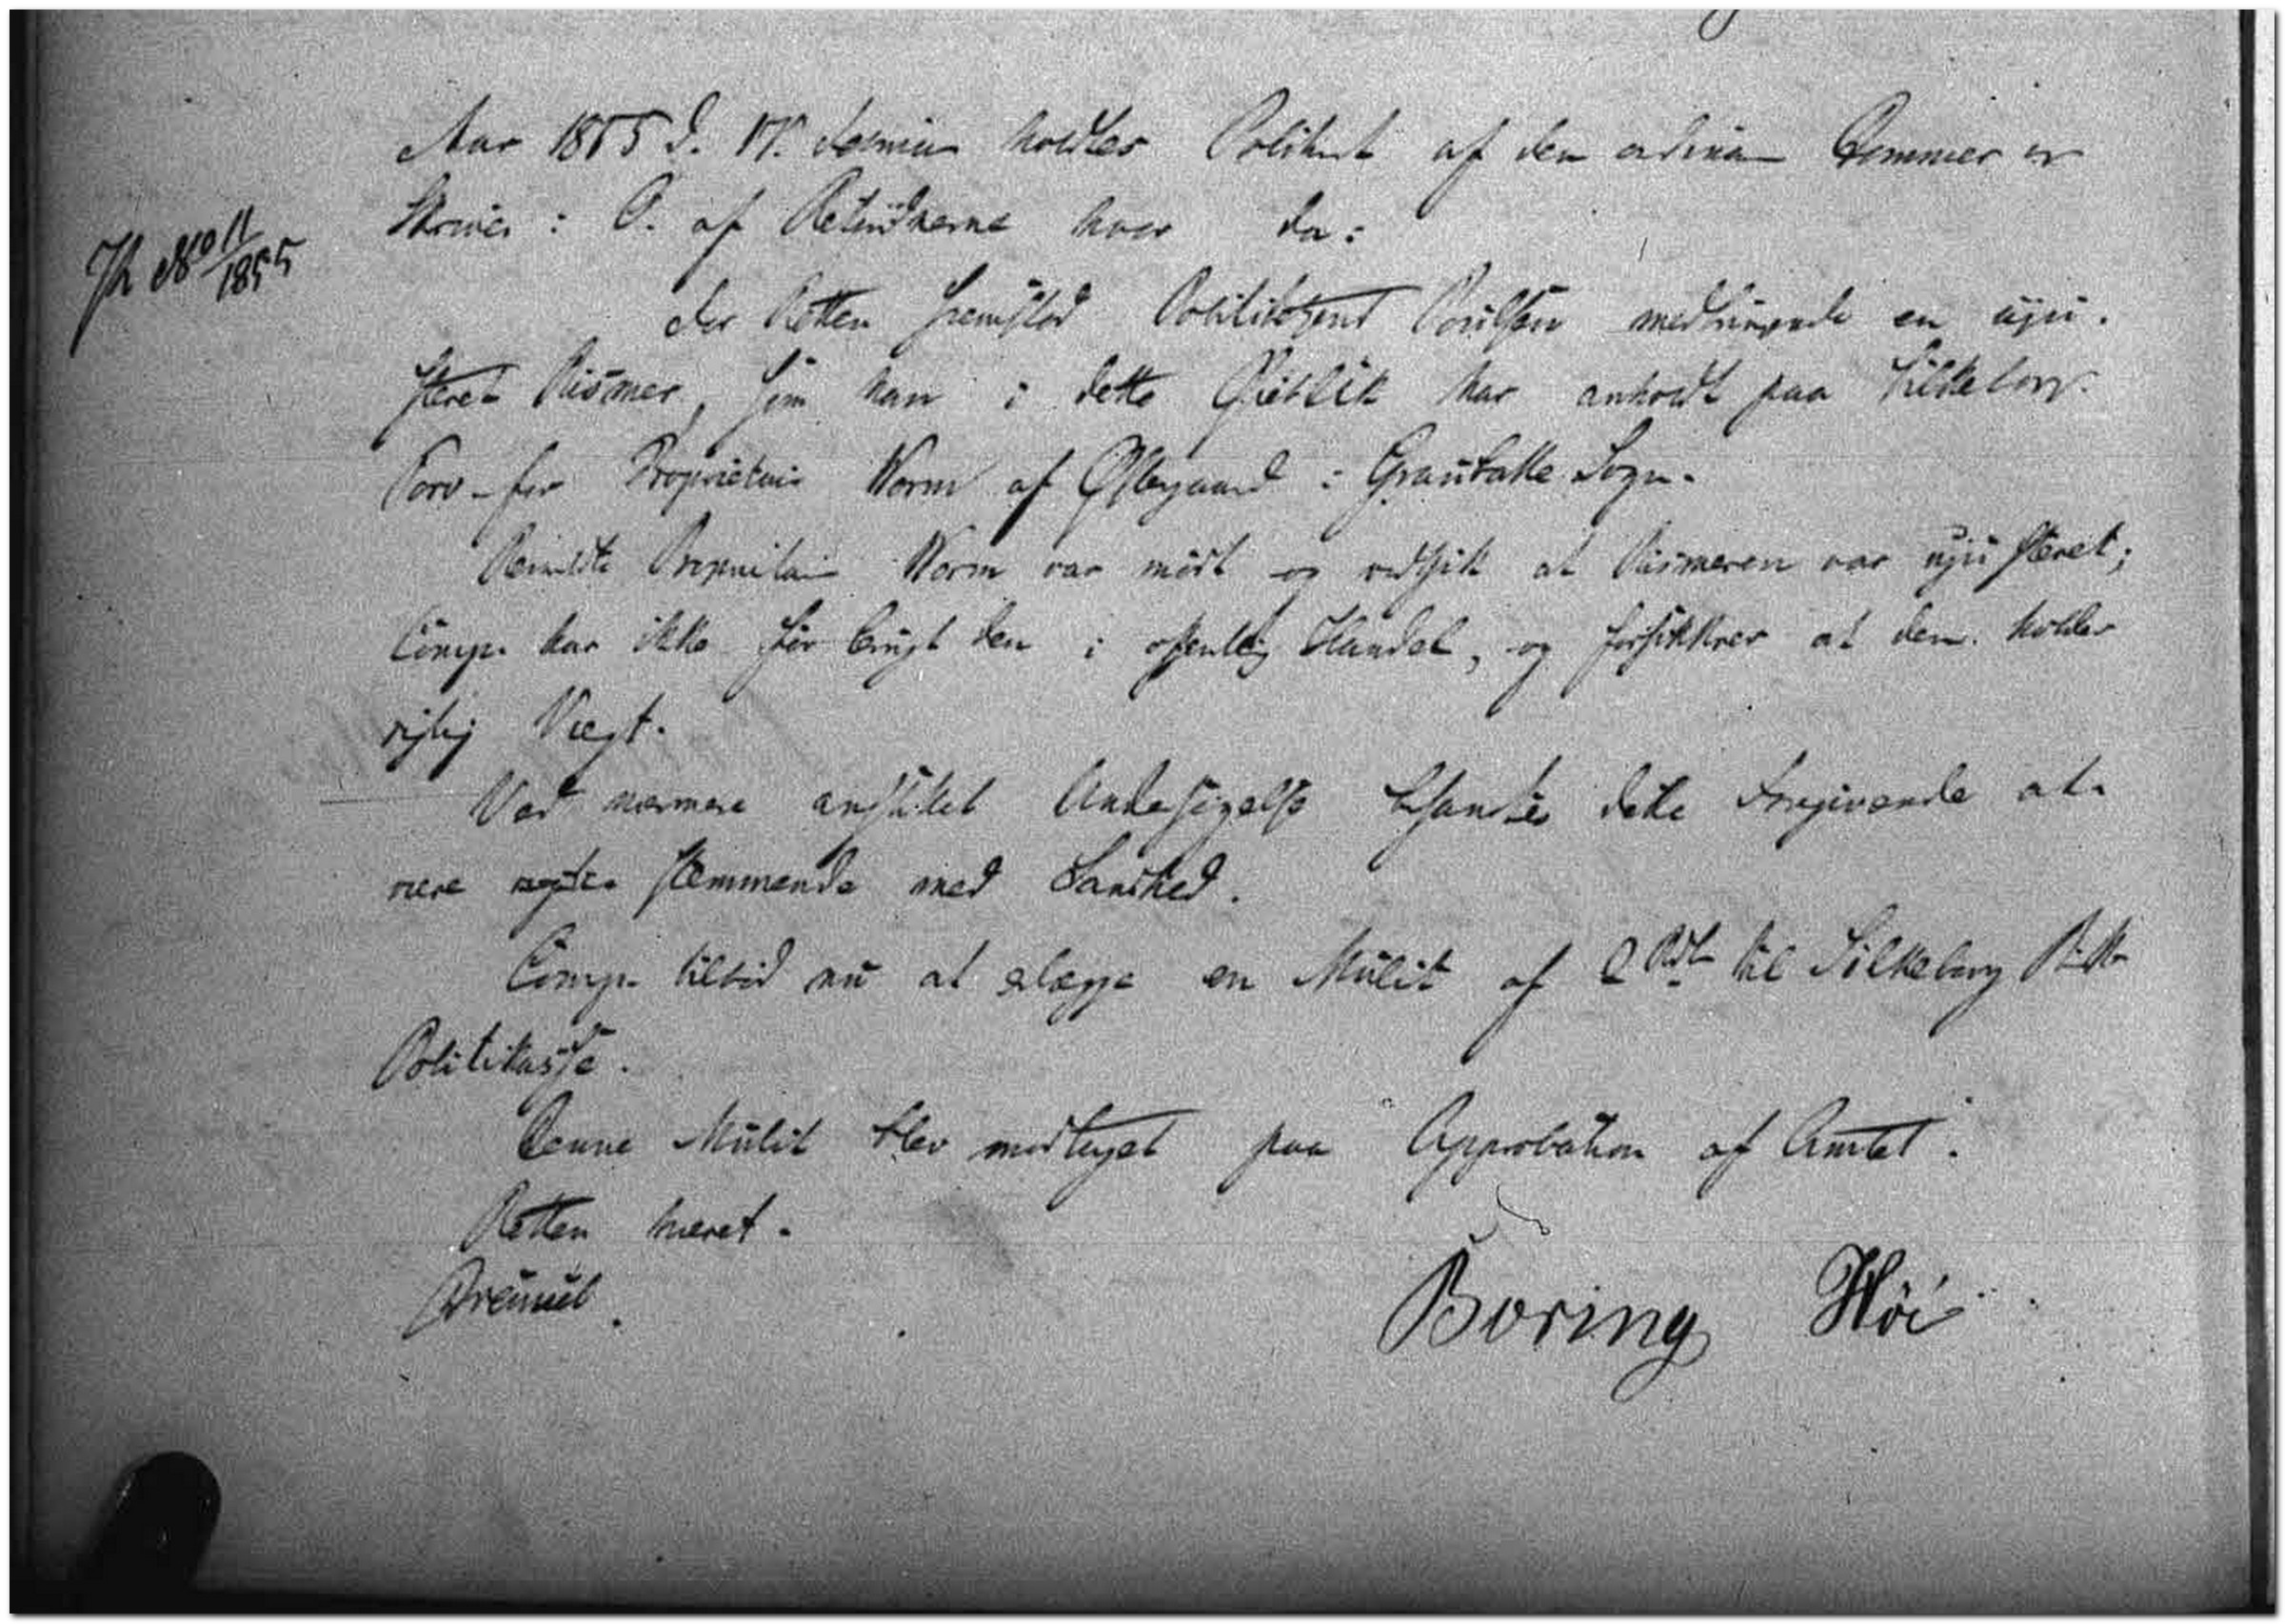 Aar 1855 d. 17. Januar holdtes Politiret af den ordinære Dommer og
Skriver i O. af Retsvidnerne hvor da:
J. No 11/1855
For Retten fremstod Politibetjent Poulsen medbringende en uju-
steret Bismer, som han i dette Øieblik har anholdt paa Silkeborg
Torv for Proprietair Worm af Østergaard i Grauballe Sogn.
Bemeldte Proprietair Worm var mødt og vedgik at Bismeren var ujusteret;
Comp. har ikke før brugt den i offentlig Handel, og forsikkrer at den holder
rigtig Vægt.
Ved nærmere anstillet Undersøgelse befandtes dette Foregivende at
være stemmende med Sandhed.
Comp. tilbød nu at erlægge en Mulct af 2 Rdl til Silkeborg Birks
Politikasse.
Denne Mulct blev modtaget paa Approbation af Amtet.
Retten hævet.
Drewsen.
Boring Høi